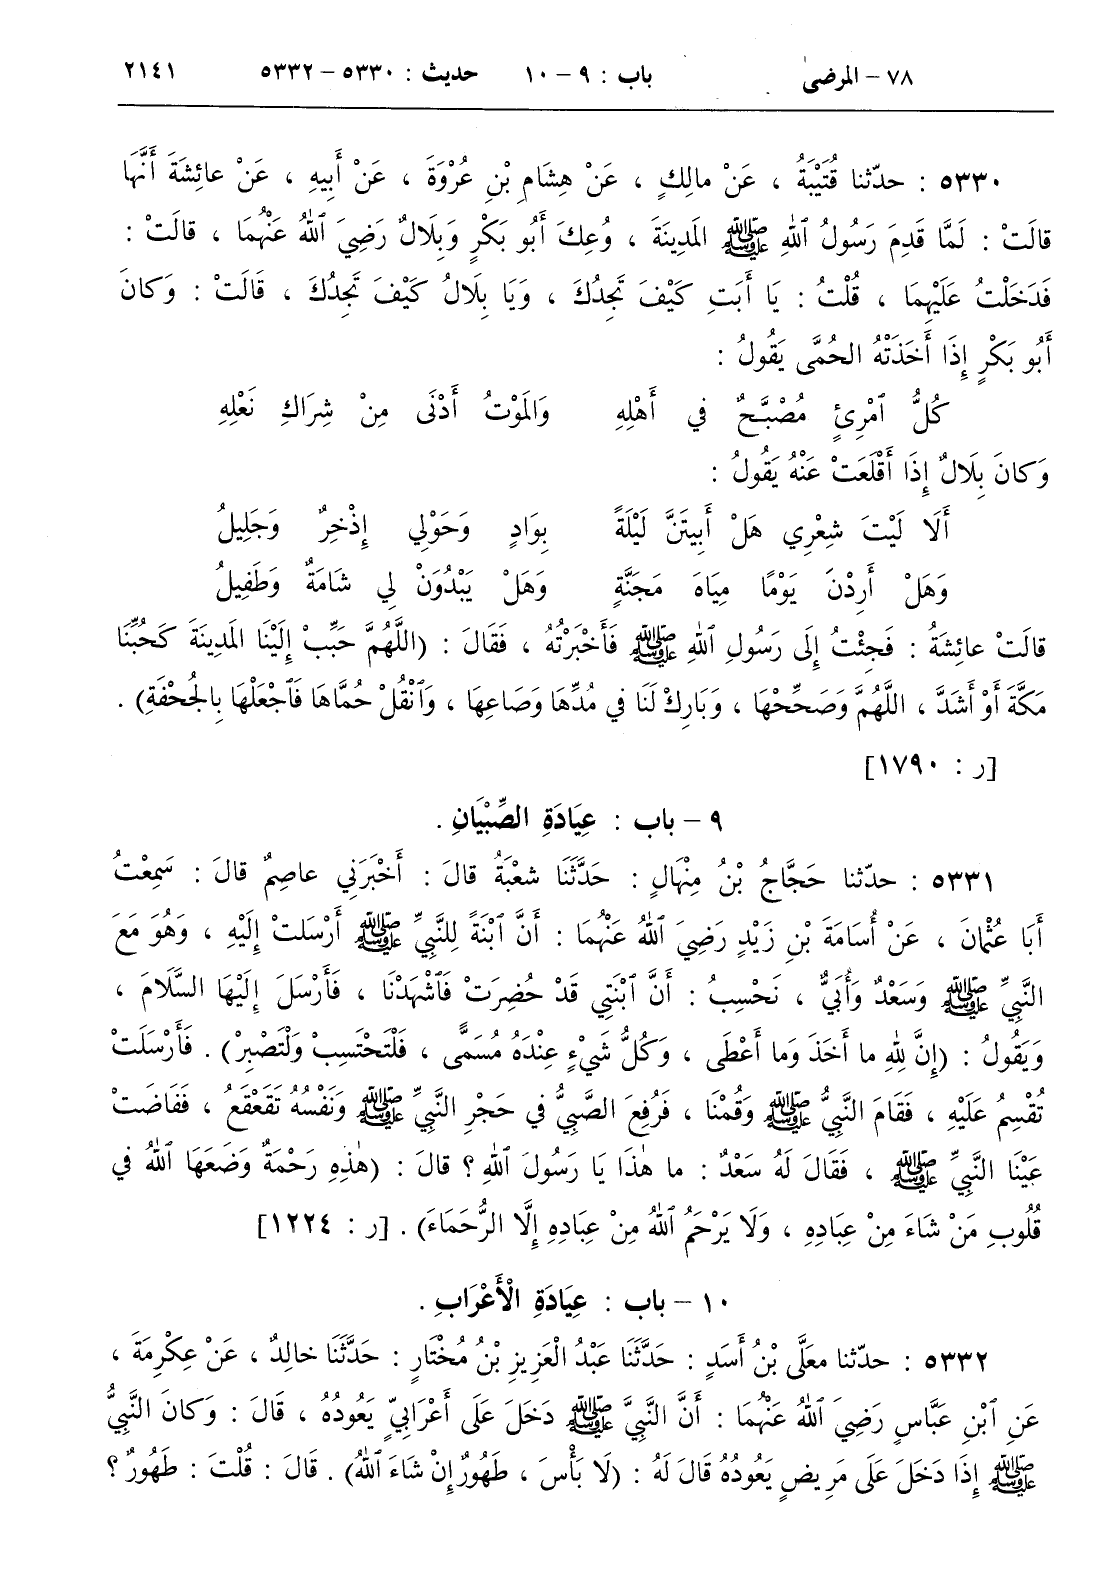 ٧٨ – المرضىٰ باب : ٩ – ١٠ حديث : ٥٣٣٠ – ٥٣٣٢ ٢١٤١
٥٣٣٠ : حدّثنا قُتَيْبَةُ ، عَنْ مالِكٍ ، عَنْ هِشَامِ بْنِ عُرْوَةَ ، عَنْ أَبِيهِ ، عَنْ عائِشَةَ أَنَّهَا
قالَتْ : لَمَّا قَدِمَ رَسُولُ ٱللهِ ﷺ المَدِينَةَ ، وُعِكَ أَبُو بَكْرٍ وَبِلَالٌ رَضِيَ ٱللهُ عَنْهُمَا ، قالَتْ :
فَدَخَلْتُ عَلَيْهِمَا ، قُلْتُ : يَا أَبَتِ كَيْفَ تَجِدُكَ ، وَيَا بِلَالُ كَيْفَ تَجِدُكَ ، قَالَتْ : وَكانَ
أَبُو بَكْرٍ إِذَا أَخَذَتْهُ الحُمَّى يَقُولُ :
كُلُّ ٱمْرِئٍ مُصَبَّحٌ في أَهْلِهِ وَالمَوْتُ أَدْنَى مِنْ شِرَاكِ نَعْلِهِ
وَكانَ بِلَالٌ إِذَا أَقْلَعَتْ عَنْهُ يَقُولُ :
أَلَا لَيْتَ شِعْرِي هَلْ أَبِيتَنَّ لَيْلَةً بِوَادٍ وَحَوْلِي إِذْخِرٌ وَجَلِيلُ
وَهَلْ أَرِدْنَ يَوْمًا مِيَاهَ مَجَنَّةٍ وَهَلْ يَبْدُوَنْ لِي شَامَةٌ وَطَفِيلُ
قالَتْ عائِشَةُ : فَجِئْتُ إِلَى رَسُولِ ٱللهِ ﷺ فَأَخْبَرْتُهُ ، فَقَالَ : (اللَّهُمَّ حَبِّبْ إِلَيْنَا المَدِينَةَ كَحُبِّنَا
مَكَّةَ أَوْ أَشَدَّ ، اللَّهُمَّ وَصَحِّحْهَا ، وَبَارِكْ لَنَا في مُدِّهَا وَصَاعِهَا ، وَٱنْقُلْ حُمَّاهَا فَٱجْعَلْهَا بِالجُحْفَةِ) .
[ر : ١٧٩٠]
٩ – باب : عِيَادَةِ الصِّبْيَانِ .
٥٣٣١ : حدّثنا حَجَّاجُ بْنُ مِنْهَالٍ : حَدَّثَنَا شعْبَةُ قالَ : أَخْبَرَنِي عاصِمٌ قالَ : سَمِعْتُ
أَبَا عُثْمانَ ، عَنْ أُسَامَةَ بْنِ زَيْدٍ رَضِيَ ٱللهُ عَنْهُمَا : أَنَّ ٱبْنَةً لِلنَّبِيِّ ﷺ أَرْسَلَتْ إِلَيْهِ ، وَهُوَ مَعَ
النَّبِيِّ ﷺ وَسَعْدٌ وَأُبَيٌّ ، نَحْسِبُ : أَنَّ ٱبْنَتِي قَدْ حُضِرَتْ فَٱشْهَدْنَا ، فَأَرْسَلَ إِلَيْهَا السَّلَامَ ،
وَيَقُولُ : (إِنَّ لِلهِ ما أَخَذَ وَما أَعْطَى ، وَكُلُّ شَيْءٍ عِنْدَهُ مُسَمًّى ، فَلْتَحْتَسِبْ وَلْتَصْبِرْ) . فَأَرْسَلَتْ
تُقْسِمُ عَلَيْهِ ، فَقَامَ النَّبِيُّ ﷺ وَقُمْنَا ، فَرُفِعَ الصَّبِيُّ في حَجْرِ النَّبِيِّ ﷺ وَنَفْسُهُ تَقَعْقَعُ ، فَفَاضَتْ
عَيْنَا النَّبِيِّ ﷺ ، فَقَالَ لَهُ سَعْدٌ : ما هٰذَا يَا رَسُولَ ٱللهِ ؟ قالَ : (هٰذِهِ رَحْمَةٌ وَضَعَهَا ٱللهُ في
قُلُوبِ مَنْ شَاءَ مِنْ عِبَادِهِ ، وَلَا يَرْحَمُ ٱللهُ مِنْ عِبَادِهِ إِلَّا الرُّحَمَاءَ) . [ر : ١٢٢٤]
١٠ – باب : عِيَادَةِ الْأَعْرَابِ .
٥٣٣٢ : حدّثنا معَلَّى بْنُ أَسَدٍ : حَدَّثَنَا عَبْدُ الْعَزِيزِ بْنُ مُخْتَارٍ : حَدَّثَنَا خالِدٌ ، عَنْ عِكْرِمَةَ ،
عَنِ ٱبْنِ عَبَّاسٍ رَضِيَ ٱللهُ عَنْهُمَا : أَنَّ النَّبِيَّ ﷺ دَخَلَ عَلَى أَعْرَابِيٍّ يَعُودُهُ ، قَالَ : وَكانَ النَّبِيُّ
ﷺ إِذَا دَخَلَ عَلَى مَرِيضٍ يَعُودُهُ قالَ لَهُ : (لَا بَأْسَ ، طَهُورٌ إِنْ شَاءَ ٱللهُ) . قالَ : قُلْتَ : طَهُورٌ ؟